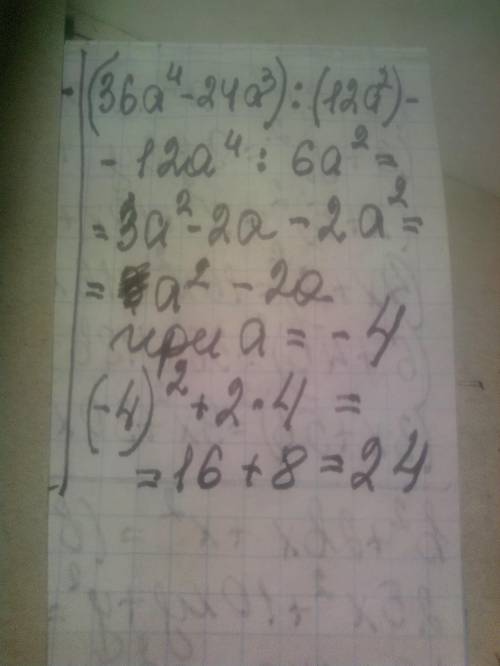 (36a⁴-24a³):(12a²)-
-12a⁴:6a²=
=3a²-2a-2a²=
=a²-2a
при a=-4
(-4)²+2·4=
=16+8=24